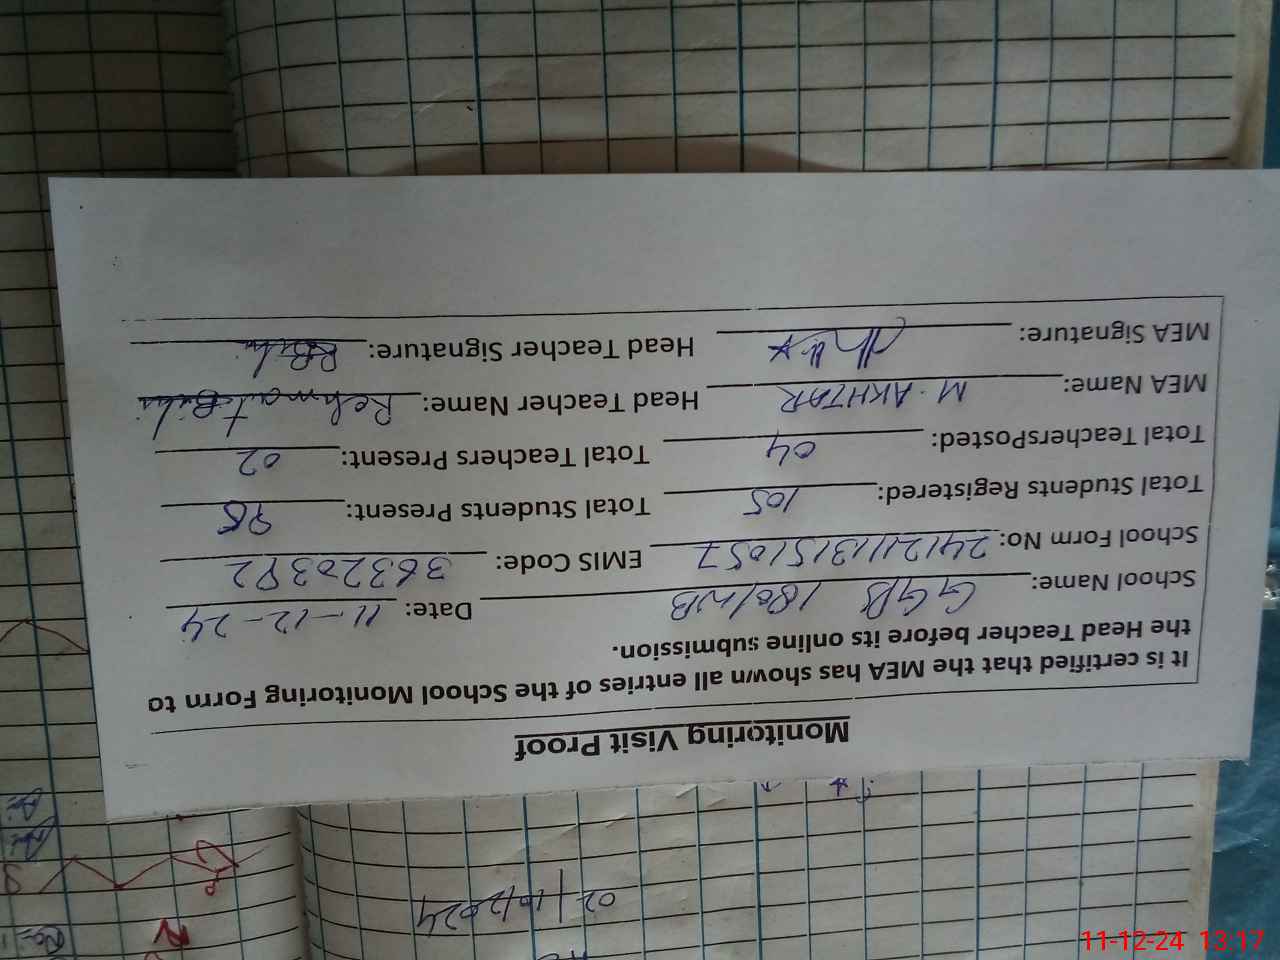 Monitoring Visit Proof
It is certified that the MEA has shown all entries of the School Monitoring Form to
the Head Teacher before its online submission.
School Name: GGPS 180/WB Date: 11-12-24
School Form No: 24121113151057 EMIS Code: 36320392
Total Students Registered: 105 Total Students Present: 95
Total TeachersPosted: 04 Total Teachers Present: 02
MEA Name: M. AKHTAR Head Teacher Name: Rehmat Bibi
MEA Signature: Head Teacher Signature: RBibi
11-12-24 13:17